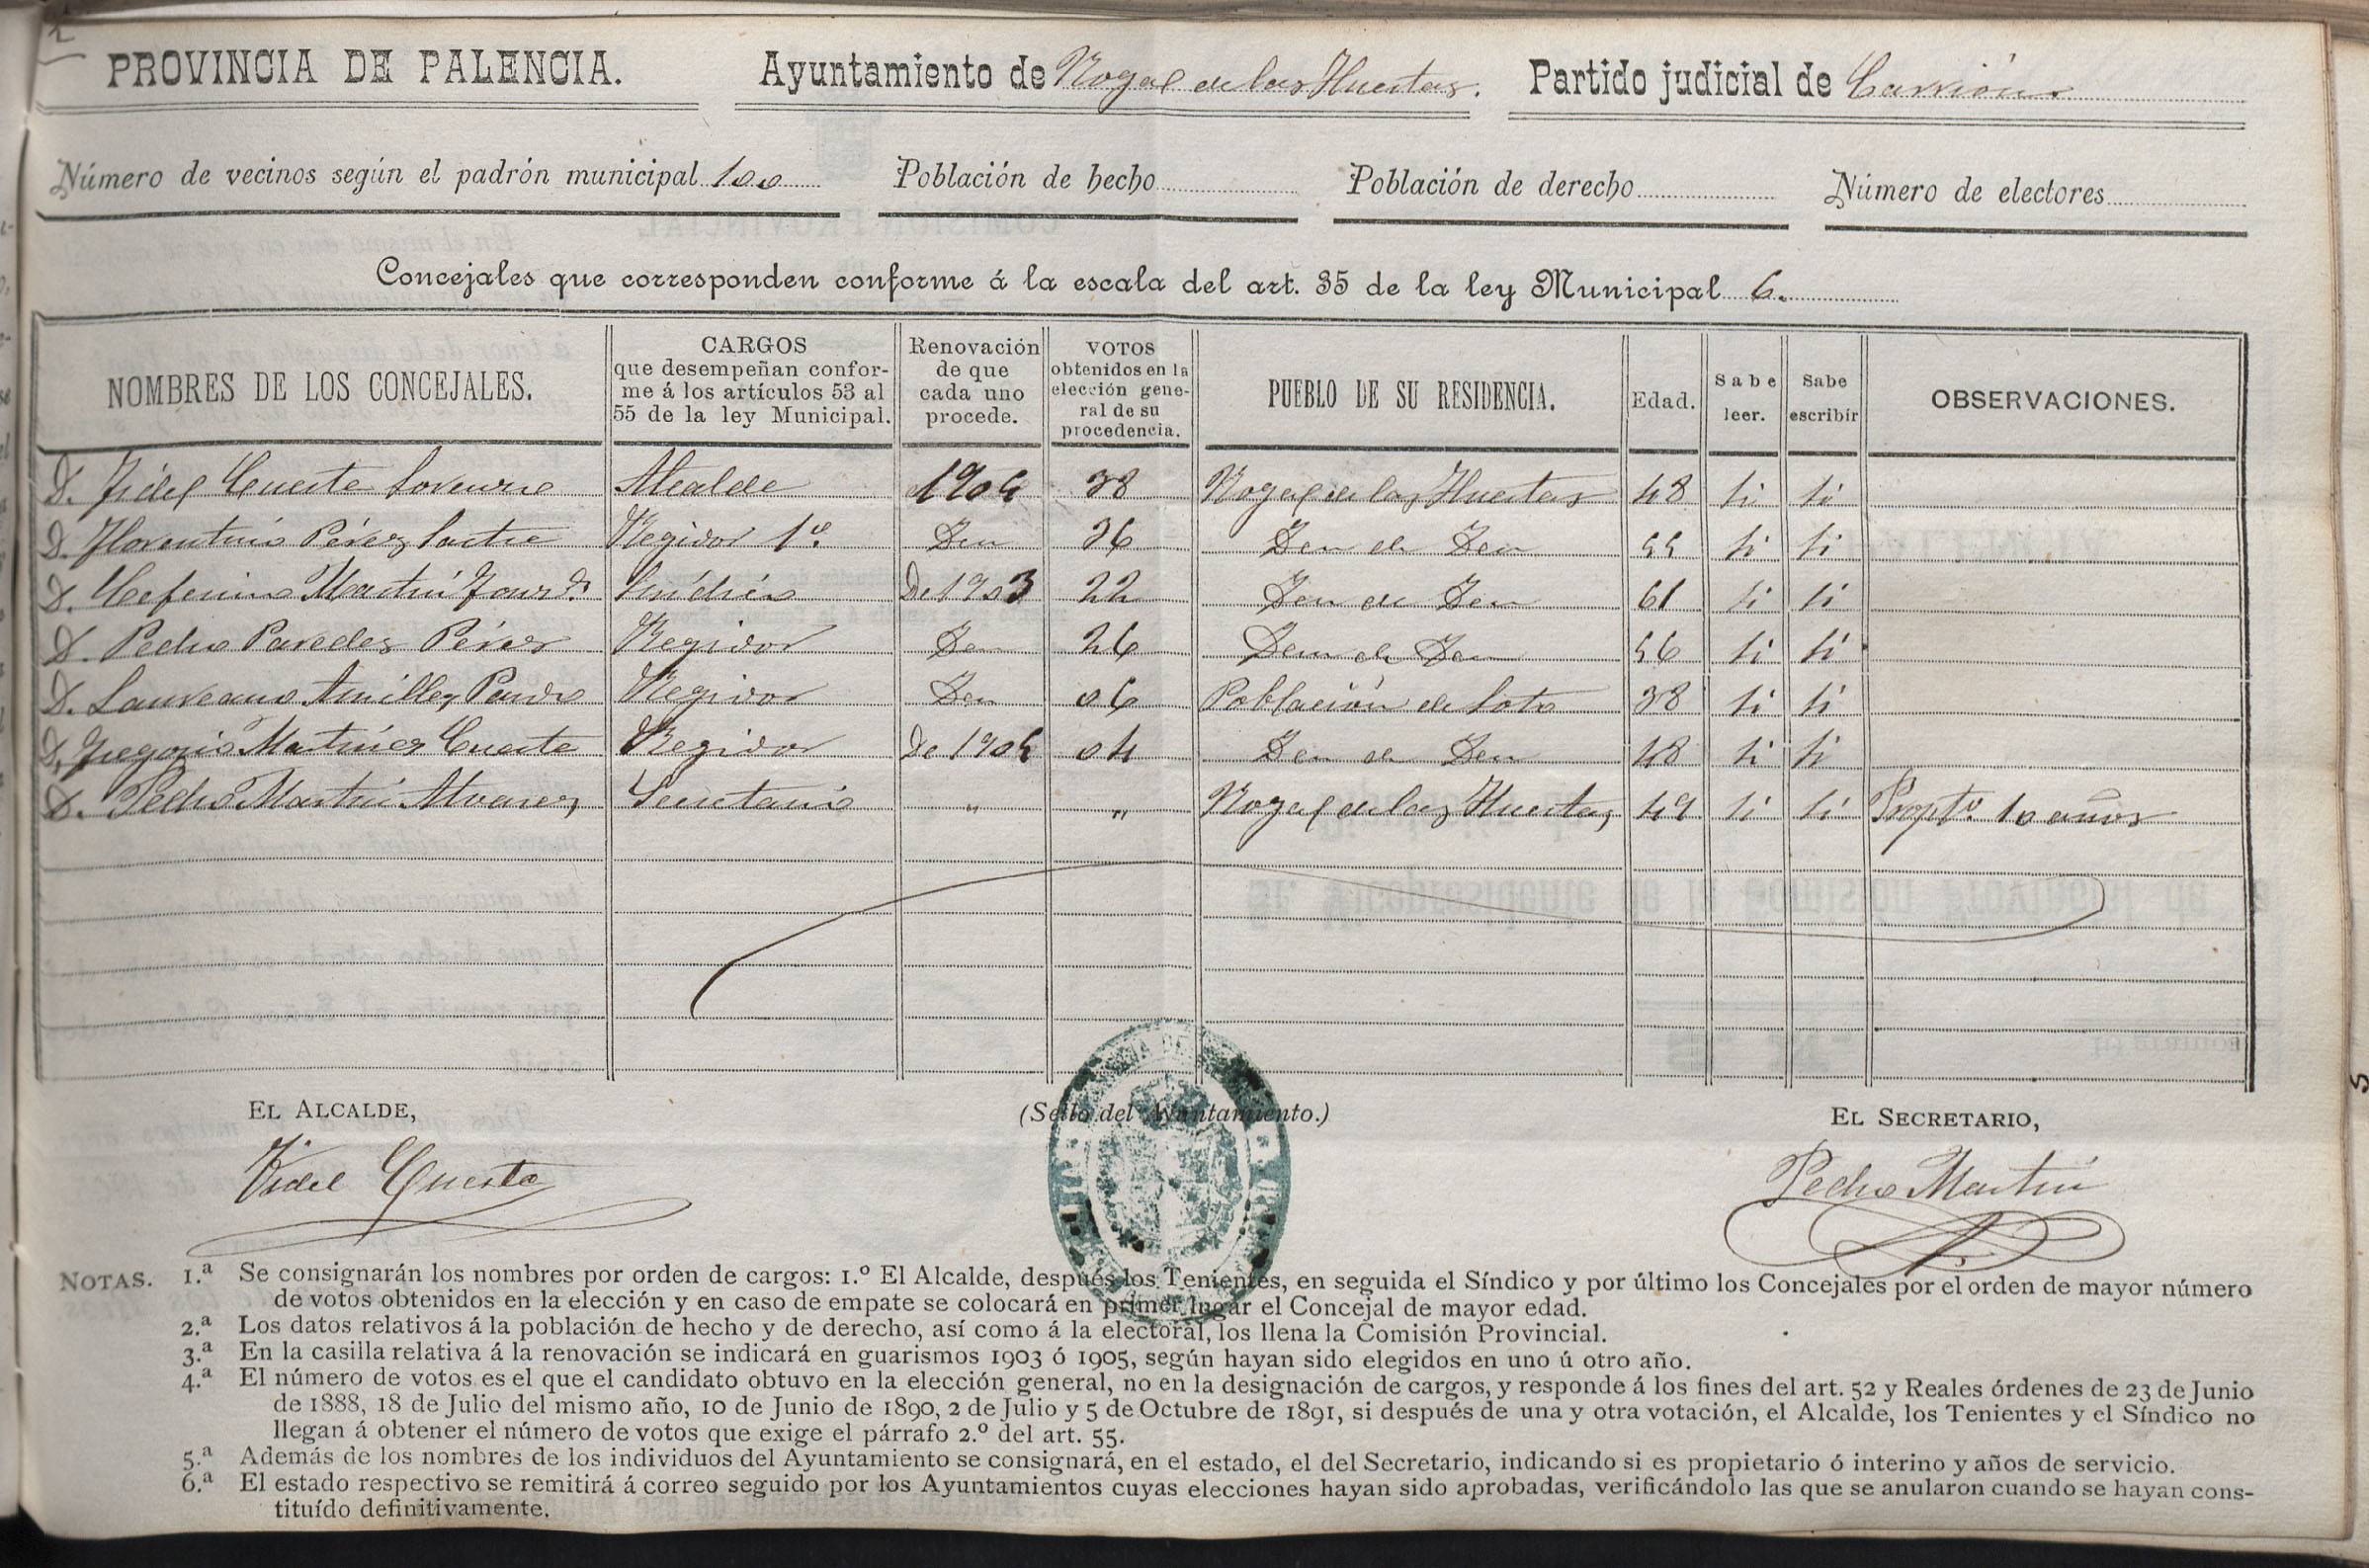 PROVINCIA DE PALENCIA. Ayuntamiento de Nogal de las Huertas. Partido judicial de Carrión
Número de vecinos según el padrón municipal 100 Población de hecho Población de derecho Número de electores
Concejales que corresponden conforme á la escala del art. 35 de la ley Municipal 6.
NOMBRES DE LOS CONCEJALES.
CARGOS
que desempeñan confor-
me á los artículos 53 al
55 de la ley Municipal.
Renovación
de que
cada uno
procede.
VOTOS
obtenidos en la
elección gene-
ral de su
procedencia.
PUEBLO DE SU RESIDENCIA.
Edad.
Sabe
leer.
Sabe
escribir
OBSERVACIONES.
D. Fidel Cuesta Lorenzo Alcalde 1905 38 Nogal de las Huertas 48 si si
D. Florentino Pérez Sastre Regidor 1º. Den 36 Den de Den 55 si si
D. Ceferino Martín Síndico De 1903 22 Den de Den 61 si si
D. Pedro Paredes Pérez Regidor Den 26 Den de Den 56 si si
D. Laureano Regidor Den 06 Población de Soto 38 si si
D. Gregorio Martínez Cuesta Regidor De 1905 04 Den de Den 48 si si
D. Pedro Martín Alvarez Secretario " " Nogal de las Huertas 49 si si Proptº. 10 años
EL ALCALDE,
(Sello del Ayuntamiento.)
EL SECRETARIO,
Fidel Cuesta
Pedro Martín
NOTAS. 1.ª Se consignarán los nombres por orden de cargos: 1.º El Alcalde, después los Tenientes, en seguida el Síndico y por último los Concejales por el orden de mayor número
de votos obtenidos en la elección y en caso de empate se colocará en primer lugar el Concejal de mayor edad.
2.ª Los datos relativos á la población de hecho y de derecho, así como á la electoral, los llena la Comisión Provincial.
3.ª En la casilla relativa á la renovación se indicará en guarismos 1903 ó 1905, según hayan sido elegidos en uno ú otro año.
4.ª El número de votos es el que el candidato obtuvo en la elección general, no en la designación de cargos, y responde á los fines del art. 52 y Reales órdenes de 23 de Junio
de 1888, 18 de Julio del mismo año, 10 de Junio de 1890, 2 de Julio y 5 de Octubre de 1891, si después de una y otra votación, el Alcalde, los Tenientes y el Síndico no
llegan á obtener el número de votos que exige el párrafo 2.º del art. 55.
5.ª Además de los nombres de los individuos del Ayuntamiento se consignará, en el estado, el del Secretario, indicando si es propietario ó interino y años de servicio.
6.ª El estado respectivo se remitirá á correo seguido por los Ayuntamientos cuyas elecciones hayan sido aprobadas, verificándolo las que se anularon cuando se hayan cons-
tituído definitivamente.